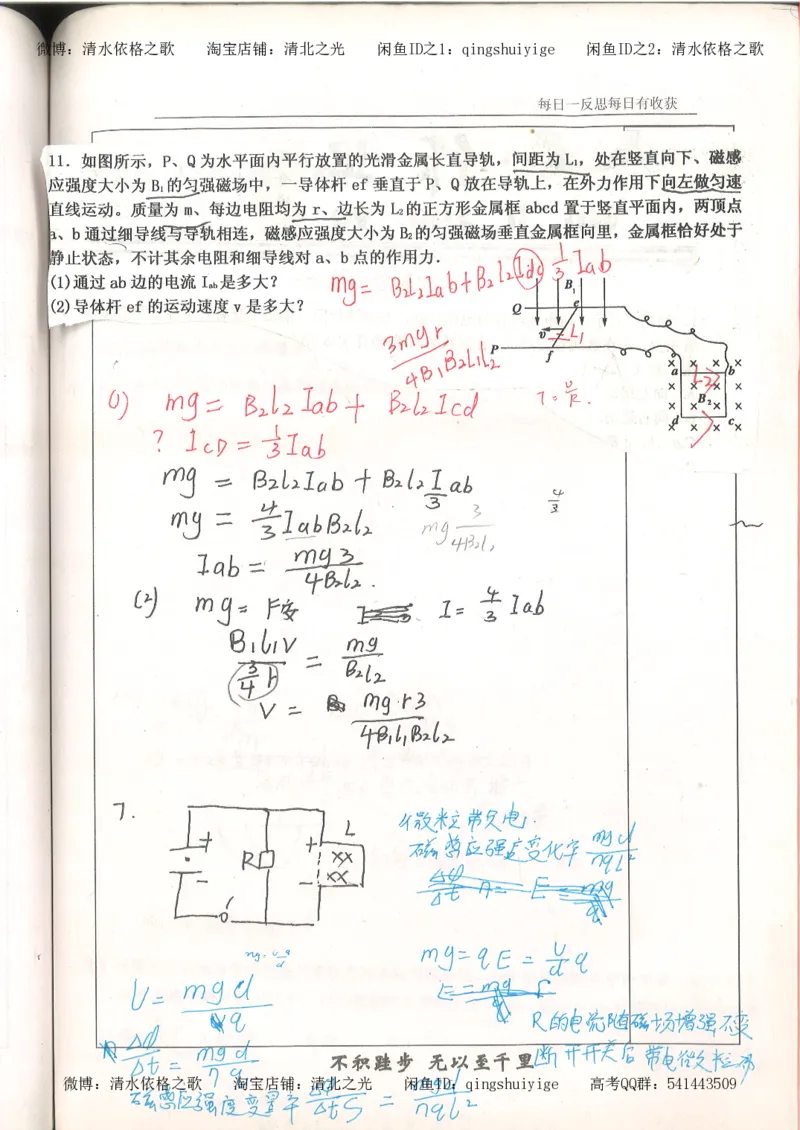 微博：清水依格之歌 淘宝店铺：清北之光 闲鱼ID之1：qingshuiyige 闲鱼ID之2：清水依格之歌
每日一反思每日有收获
11. 如图所示，P、Q为水平面内平行放置的光滑金属长直导轨，间距为L₁，处在竖直向下、磁感
应强度大小为B₁的匀强磁场中，一导体杆ef垂直于P、Q放在导轨上，在外力作用下向左做匀速
直线运动。质量为m、每边电阻均为r、边长为L₂的正方形金属框abcd置于竖直平面内，两顶点
a、b通过细导线与导轨相连，磁感应强度大小为B₂的匀强磁场垂直金属框向里，金属框恰好处于
静止状态，不计其余电阻和细导线对a、b点的作用力.
(1)通过ab边的电流Iab是多大？
(2)导体杆ef的运动速度v是多大？
mg = B₂L₂Iab + B₂L₂ Idc 1/3 Iab
B₁
Q e
v =L₁
P f
a L₂ b
B₂
d c
3mgr / 4B₁B₂L₁L₂
(1) mg = B₂l₂Iab + B₂l₂Icd I=U/R.
? ICD = 1/3 Iab
mg = B₂l₂Iab + B₂l₂ I/3 ab
4/3
mg = 4/3 IabB₂l₂ mg 3/4B₂l₂
Iab = mg3 / 4B₂l₂.
(2) mg = F安 I = 4/3 Iab
B₁l₁V / 3/4 r = mg / B₂l₂
V = mg·r3 / 4B₁l₁B₂l₂
7.
L
R
+ − + −
×× ××
微粒带负电.
磁感应强度变化率 mgd / nql²
mg = qE = U/d q
U = mgd / q
R的电流随磁场增强不变
断开开关后带电微粒
Δφ/Δt = mgd / nq
不积跬步 无以至千里
微博：清水依格之歌 淘宝店铺：清北之光 闲鱼ID：qingshuiyige 高考QQ群：541443509
磁感应强度变量率 Δφ/ΔtS = mgd / nql²